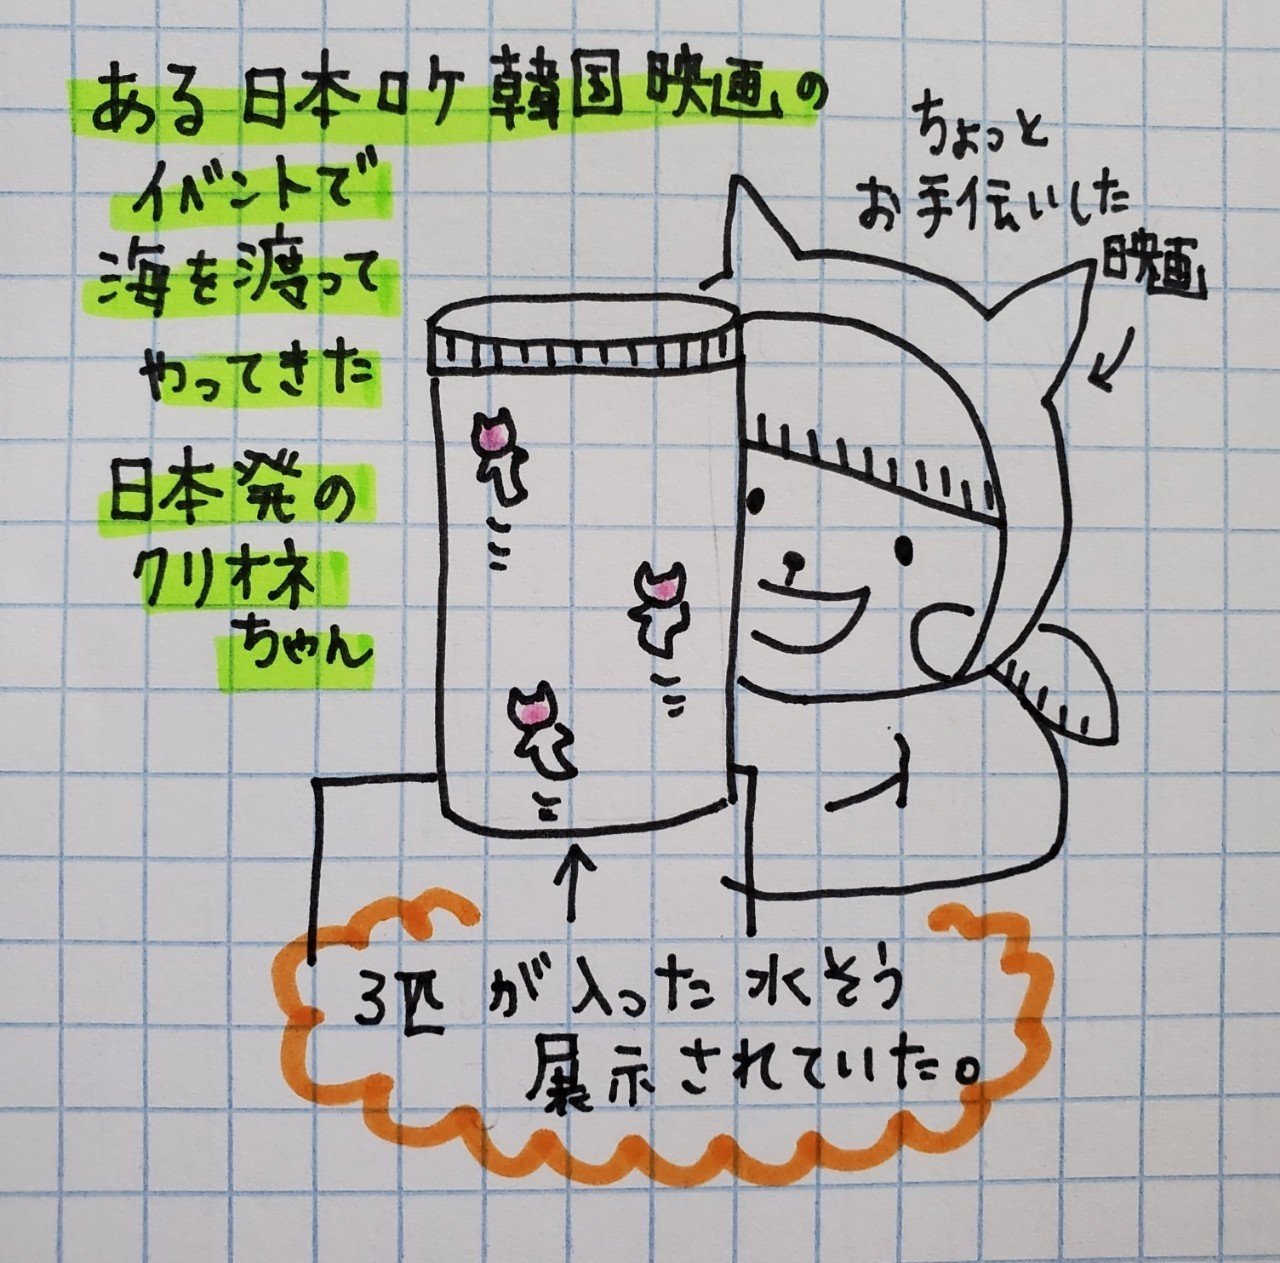 ある日本ロケ韓国映画の
イベントで
海を渡って
やってきた
日本発の
クリオネ
ちゃん
ちょっと
お手伝いした
映画
3匹が入った水そう
展示されていた。